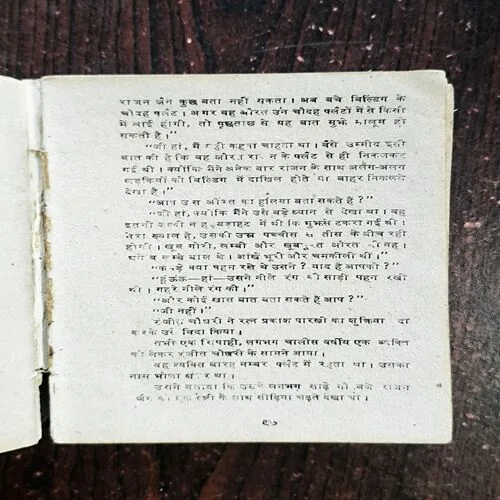 राजन जैन कुछ बता नहीं सकता। अब बचे बिल्डिंग के
चौदह फ्लैट। अगर वह औरत उन चौदह फ्लैटों में से किसी
में आई होगी, तो पूछताछ से यह बात मुझे मालूम हो
सकती है।"
"जी हां, मैं यही कहना चाहता था। वैसे उम्मीद इसी
बात की है कि वह औरत राजन के फ्लैट से ही निकलकर
गई थी। क्योंकि मैंने अनेक बार राजन के साथ अलग-अलग
लड़कियों को बिल्डिंग में दाखिल होते या बाहर निकलते
देखा है।"
"आप उस औरत का हुलिया बता सकते हैं?"
"जी हां, क्योंकि मैंने उसे बड़े ध्यान से देखा था। वह
इतनी जल्दी व हड़बड़ाहट में थी कि मुझसे टकरा गई थी।
मेरा ख्याल है, उसकी उम्र पच्चीस से तीस के बीच रही
होगी। खूब गोरी, लम्बी और खूबसूरत औरत थी वह।
घने व लम्बे बाल थे। आंखें भूरी और चमकीली थीं।"
"कपड़े क्या पहन रखे थे उसने? याद है आपको?"
"हूंऊऊ—हां—उसने नीले रंग की साड़ी पहन रखी
थी। गहरे नीले रंग की।"
"और कोई खास बात बता सकते हैं आप?"
"जी नहीं।"
रंजीत चौधरी ने रत्न प्रकाश पारखी का शुक्रिया अदा
करके उसे विदा किया।
तभी एक सिपाही, लगभग चालीस वर्षीय एक व्यक्ति
को लेकर रंजीत चौधरी के सामने आया।
वह व्यक्ति बारह नम्बर फ्लैट में रहता था। उसका
नाम भोला था।
उसने बताया कि उसने लगभग साढ़े नौ बजे राजन
जैन को एक स्त्री के साथ सीढ़ियां चढ़ते देखा था।
९७